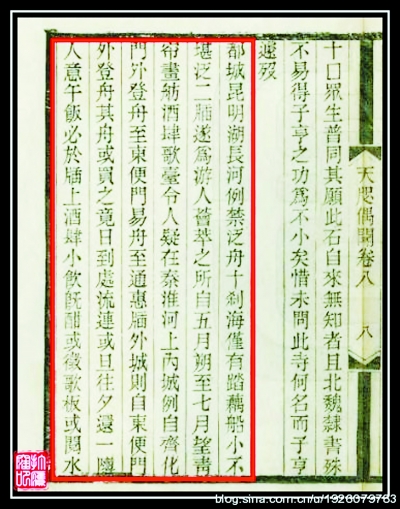 天咫偶聞卷八
八
十口眾生普同其願此石自來無知者且北魏隸書殊
不易得子亨之功為不小矣惜未問此寺何名而子亨
遽歿
都城昆明湖長河例禁泛舟十剎海僅有踏藕船小不
堪泛二牐遂為游人薈萃之所自五月朔至七月望青
帘畫舫酒肆歌臺令人疑在秦淮河上內城例自齊化
門外登舟至東便門易舟至通惠牐外城則自東便門
外登舟其舟或買之竟日到處流連或旦往夕還一隨
人意午飯必於牐上酒肆小飲既酣或徵歌板或閱水
blog.sina.com.cn/u/1326073763